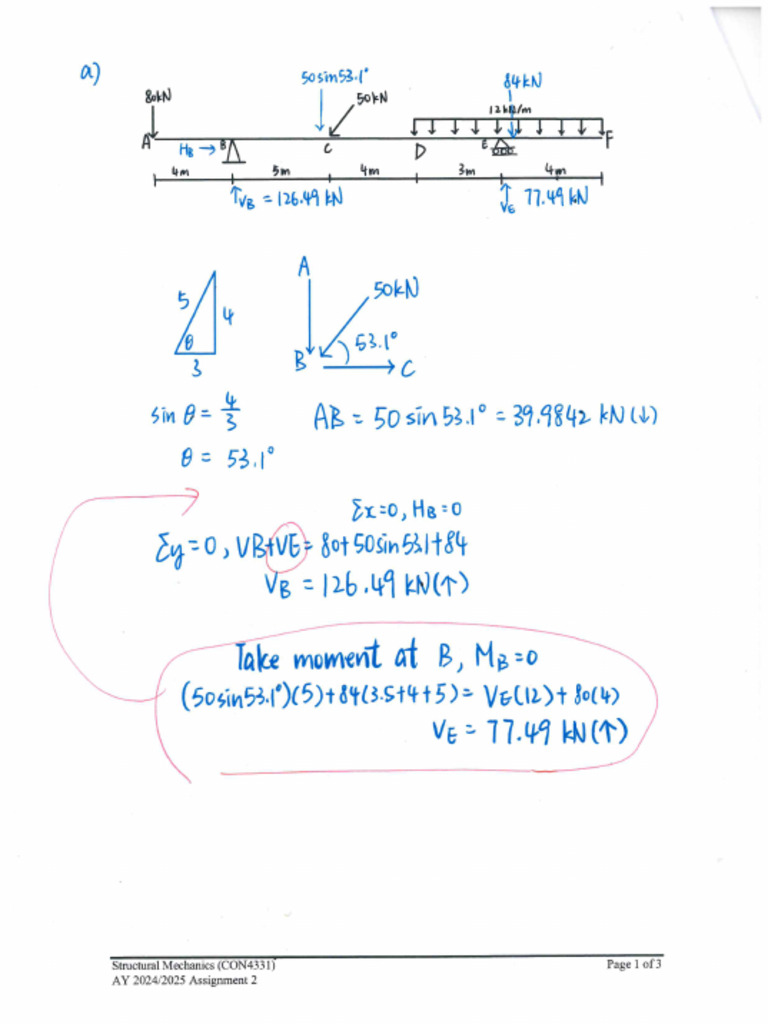 a)
50sin53.1°
84kN
80kN
50kN
12kN/m
A
HB →
B
C
D
E
F
4m
5m
4m
3m
4m
↑VB = 126.49 kN
↑VE 77.49 kN
5
4
θ
3
A
50kN
53.1°
B
C
sin θ = 4/3
θ = 53.1°
AB = 50 sin 53.1° = 39.9842 kN (↓)
Σx=0, HB=0
Σy=0, VB+VE= 80+50sin53.1+84
VB = 126.49 kN(↑)
Take moment at B, MB=0
(50sin53.1°)(5)+84(3.5+4+5)= VE(12)+80(4)
VE = 77.49 kN(↑)
Structural Mechanics (CON4331)
Page 1 of 3
AY 2024/2025 Assignment 2